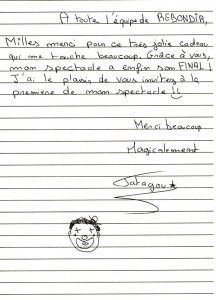 A toute l'équipe de REBONDIR,
Milles merci pour ce très jolie cadeau
qui me touche beaucoup. Grâce à vous,
mon spectacle a enfin son FINAL !
J'ai le plaisir de vous invitez à la
première de mon spectacle !!
Merci beaucoup
Magicalement
Jatagou